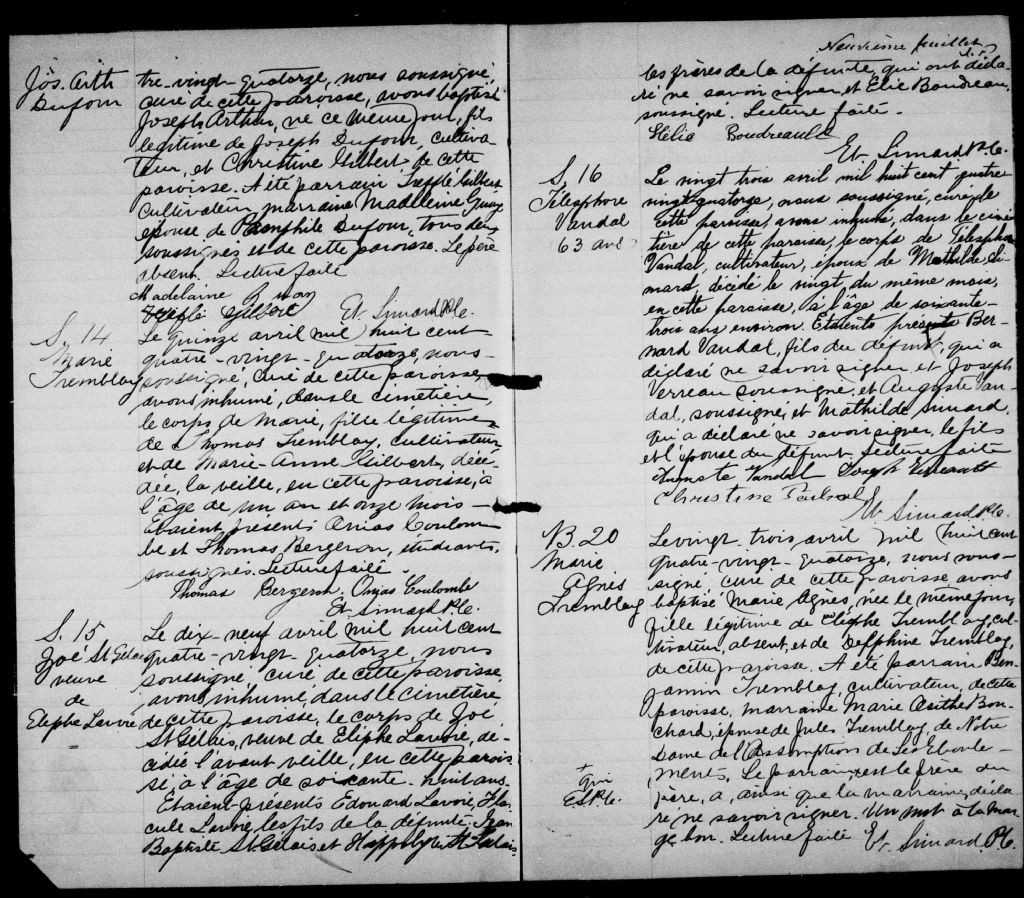 Jos. Arth
Dufour
tre-vingt-quatorze, nous soussigné,
curé de cette paroisse, avons baptisé
Joseph Arthur, né ce même jour, fils
légitime de Joseph Dufour, cultiva-
teur, et Christine Gilbert de cette
paroisse. A été parrain Trefflé Gilbert
cultivateur, marraine Madeleine Guay
épouse de Pamphile Dufour, tous deux
soussignés et de cette paroisse. Le père
absent. Lecture faite
Madelaine Guay
Treflé Gilbert Et. Simard Ptr.
S. 14
Marie
Tremblay
Le quinze avril mil huit cent
quatre-vingt-quatorze, nous-
soussigné, curé de cette paroisse,
avons inhumé, dans le cimetière,
le corps de Marie, fille légitime
de Thomas Tremblay, cultivateur
et de Marie-Anne Gilbert, décé-
dée, la veille, en cette paroisse, à
l'âge de un an et onze mois-
Etaient présents Onias Coulom-
be et Thomas Bergeron, étudiants,
soussignés. Lecture faite.
Thomas Bergeron. Onias Coulombe
Et. Simard Ptr.
S. 15
Zoé St Gelais
veuve
de
Eliphe Lavoie
Le dix-neuf avril mil huit cent
quatre-vingt-quatorze, nous
soussigné, curé de cette paroisse,
avons inhumé, dans le cimetière
de cette paroisse, le corps de Zoé
St Gelais, veuve de Eliphe Lavoie, dé-
cédée l'avant veille, en cette parois-
se, à l'âge de soixante-huit ans.
Etaient présents Edouard Lavoie, Her-
cule Lavoie, les fils de la défunte, Jean
Baptiste St Gelais et Hippolyte St Gelais
Neuvième feuillet
les frères de la défunte, qui ont décla-
ré ne savoir signer, et Elie Boudreau,
soussigné. Lecture faite.
Hélie Boudreault
Et. Simard Ptr.
S. 16
Télesphore
Vandal
63 ans
Le vingt trois avril mil huit cent quatre
vingt quatorze, nous soussigné, curé de
cette paroisse, avons inhumé, dans le cime-
tière de cette paroisse, le corps de Télesphore
Vandal, cultivateur, époux de Mathilde Si-
mard, décédé le vingt du même mois,
en cette paroisse, à l'âge de soixante-
trois ans environ. Etaient présents Ber-
nard Vandal, fils du défunt, qui a
déclaré ne savoir signer et Joseph
Verreau soussigné, et Auguste Van-
dal, soussigné, et Mathilde Simard,
qui a déclaré ne savoir signer, le fils
et l'épouse du défunt. Lecture faite
Auguste Vandal Joseph Verreault
Christine
Et. Simard Ptr.
B. 20
Marie
Agnès
Tremblay
Le vingt-trois avril mil huit cent
quatre-vingt-quatorze, nous sous-
signé curé de cette paroisse avons
baptisé Marie Agnès, née le même jour,
fille légitime de Eliphe Tremblay, cul-
tivateur, absent, et de Delphine Tremblay,
de cette paroisse. A été parrain Ben-
jamin Tremblay, cultivateur, de cette
paroisse, marraine Marie Osithe Bou-
chard, épouse de Jules Tremblay, de Notre
Dame de l'Assomption de Les Eboule-
ments. Le parrain est le frère du
père, a, ainsi que la marraine, décla-
ré ne savoir signer. Un mot à la mar-
ge bon. Lecture faite Et. Simard, Ptr.
+ qui
E S Ptr.